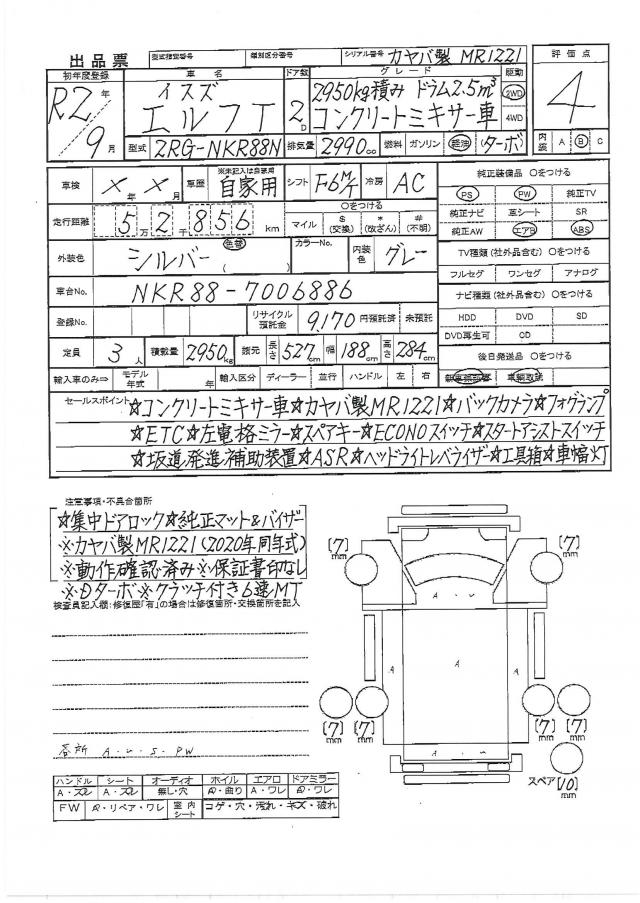 出品票 型式指定番号 類別区分番号 シリアル番号 カヤバ製 MR1221
初年度登録 車名 ドア数 グレード 駆動 評価点
R2年 9月 イスズ エルフT 2D 2950kg積み ドラム2.5m³ コンクリートミキサー車 2WD 4WD 4
型式 2RG-NKR88N 排気量 2990cc 燃料 ガソリン 軽油 ターボ 内装 A B C
車検 X年X月 車歴 ※未記入は自家用 自家用 シフト F6M/T 冷房 AC
走行距離 5万2千856km ○をつける マイル $(交換) *(改ざん) #(不明)
純正装備品 ○をつける
PS PW 純正TV
純正ナビ 革シート SR
純正AW エアB ABS
外装色 シルバー 色替 ( ) カラーNo. 内装色 グレー
TV種類(社外品含む) ○をつける
フルセグ ワンセグ アナログ
車台No. NKR88-7006886
ナビ種類(社外品含む) ○をつける
登録No. リサイクル預託金 9,170円預託済 未預託
HDD DVD SD
DVD再生可 CD
定員 3人 積載量 2950kg 諸元 長さ 527cm 幅 188cm 高さ 284cm
後日発送品 ○をつける
輸入車のみ⇒ モデル年式 年 輸入区分 ディーラー 並行 ハンドル 左 右
セールスポイント ☆コンクリートミキサー車☆カヤバ製MR1221☆バックカメラ☆フォグランプ
☆ETC☆左電格ミラー☆スペアキー☆ECONOスイッチ☆スタートアシストスイッチ
☆坂道発進補助装置☆ASR☆ヘッドライトレベライザー☆工具箱☆車幅灯
注意事項・不具合箇所
☆集中ドアロック☆純正マット&バイザー
※カヤバ製MR1221(2020年同年式)
※動作確認済み※保証書印なし
※Dターボ※クラッチ付き6速MT
検査員記入欄:修復歴「有」の場合は修復箇所・交換箇所を記入
[7]mm [7]mm
A・U
A A A
[7]mm [7]mm [7]mm [7]mm
各所 A・U・S・PW
A・U
スペア [10]mm
ハンドル シート オーディオ ホイル エアロ ドアミラー
A・スレ A・スレ 無し・穴 曲り A・ワレ ワレ
FW リペア・ワレ 室内シート コゲ・穴・汚れ・キズ・破れ